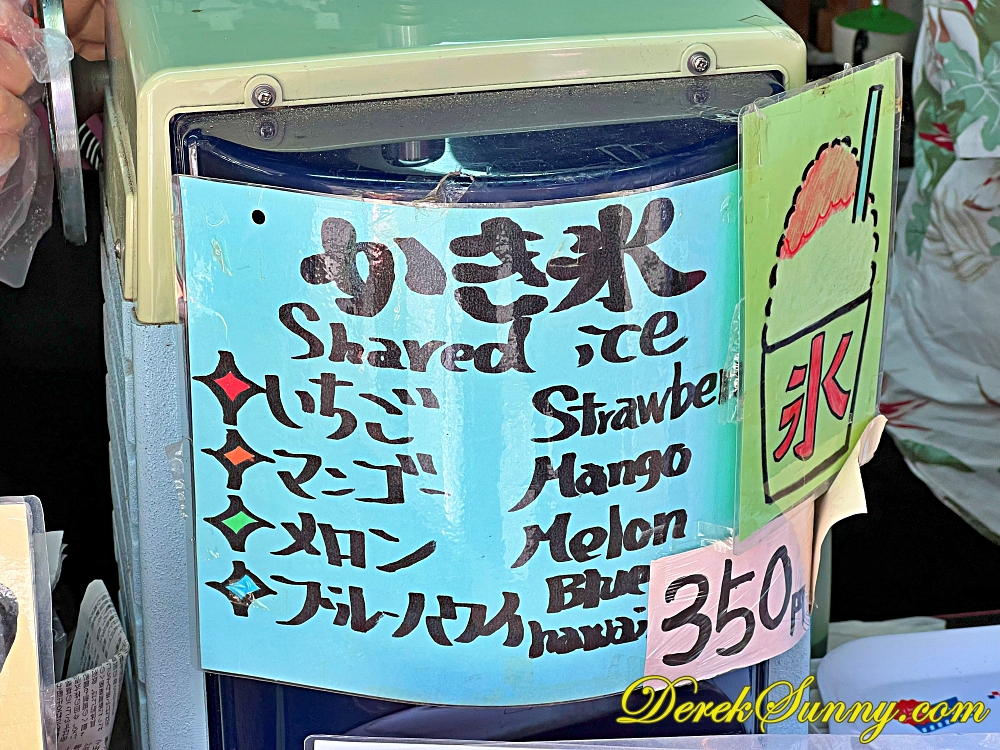 かき氷
Shared ice
いちご Strawber
マンゴー Mango
メロン Melon
ブルーハワイ Blue hawai
氷
350
DerekSunny.com